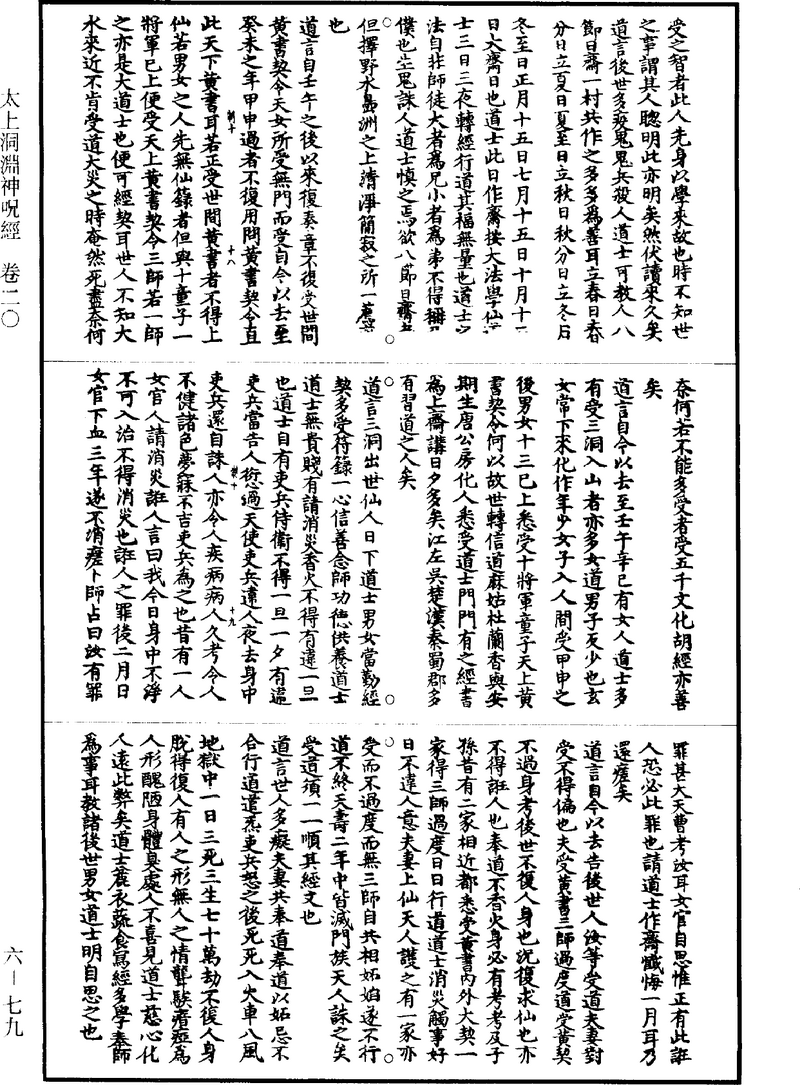 太上洞淵神呪經　卷二〇
六—七九
受之智者此人先身以學來故也時不知世
之事謂其人聰明此亦明矣然伏讀來久矣
道言後世多疫鬼鬼兵殺人道士可教人八
節日齋一村共作之多多為善耳立春日春
分日立夏日夏至日立秋日秋分日立冬日
冬至日正月十五日七月十五日十月十五
日大齋日也道士此日作齋按大法學仙
士三日三夜轉經行道其福無量也道士
法自在師徒大者為兄小者為弟不得稱
僕也生鬼誅人道士慎之焉欲八節日齋
但擇野水島洲之上清淨簡寂之所一
也
道言自壬午之後以來復奏章不復受世間
黃書契令天女所受無門而受自今以去至
癸未之年甲申過者不復用問黃書契令直
朝十
十八
此天下黃書耳若正受世間黃書者不得上
仙若男女之人先無仙籙者但與十童子一
將軍已上便受天上黃書契令三師若一師
之亦是大道士也便可經契耳世人不知大
水來近不肯受道大災之時奄然死盡奈何
奈何若不能多受者受五千文化胡經亦善
矣
道言自今以去至壬午辛巳有女人道士多
有受三洞入山者亦多女道男子灭少也玄
女常下來化作年少女子入人間受甲申之
後男女十三已上悉受十將軍童子天上黃
書契令何以故世轉信道麻姑杜蘭香與安
期生唐公房化人悉受道士門門有之經書
為上齋講日夕多矣江左吳楚漢秦蜀郡多
有習道之人矣
道言三洞出世仙人日下道士男女當勤經
契多受符籙一心信善念師功德供養道士
道士無貴賤有請消災香火不得有違一旦
也道士自有吏兵侍衛不得一旦一夕有違
吏兵當告人衍過天使吏兵違人夜去身中
朝十
十九
吏兵還自誅人亦令人疾病病人久考令人
不健諸色夢寐不吉吏兵為之也昔有一人
女官人請消災誑人言曰我今日身中不淨
不可入治不得消災也誑人之罪後二月日
女官下血三年遂不痟瘥卜師占曰汝有罪
罪甚大天曹考汝耳女官自思惟正有此誑
人恐必此罪也請道士作齋懺悔一月耳乃
還瘥矣
道言自今以去告後世人汝等受道夫妻對
受不得偏也夫受黃書三師過度道受黃契
不過身考後世不復人身也況復求仙也亦
不得誑人也奉道不香火身必有考考及子
孫昔有二家相近都悉受黃書內外大契一
家得三師過度日日行道道士消災觸事好
日不違人意夫妻上仙天人護之有一家亦
受而不過度而無三師自共相妬媢遂不行
道不終天壽二年中皆滅門族天人誅之矣
受道須一一順其經文也
道言世人多癡夫妻共奉道奉道以妬忌不
合行道道炁吏兵怒之後死死入火車八風
地獄中一日三死三生七十萬劫不復人身
脫得復人有人之形無人之情聾騃瘖瘂為
人形醜陋身體臭處人不喜見道士慈心化
人遠此弊矣道士麁衣蔬食寫經多學奉師
為事耳教諸後世男女道士明自思之也